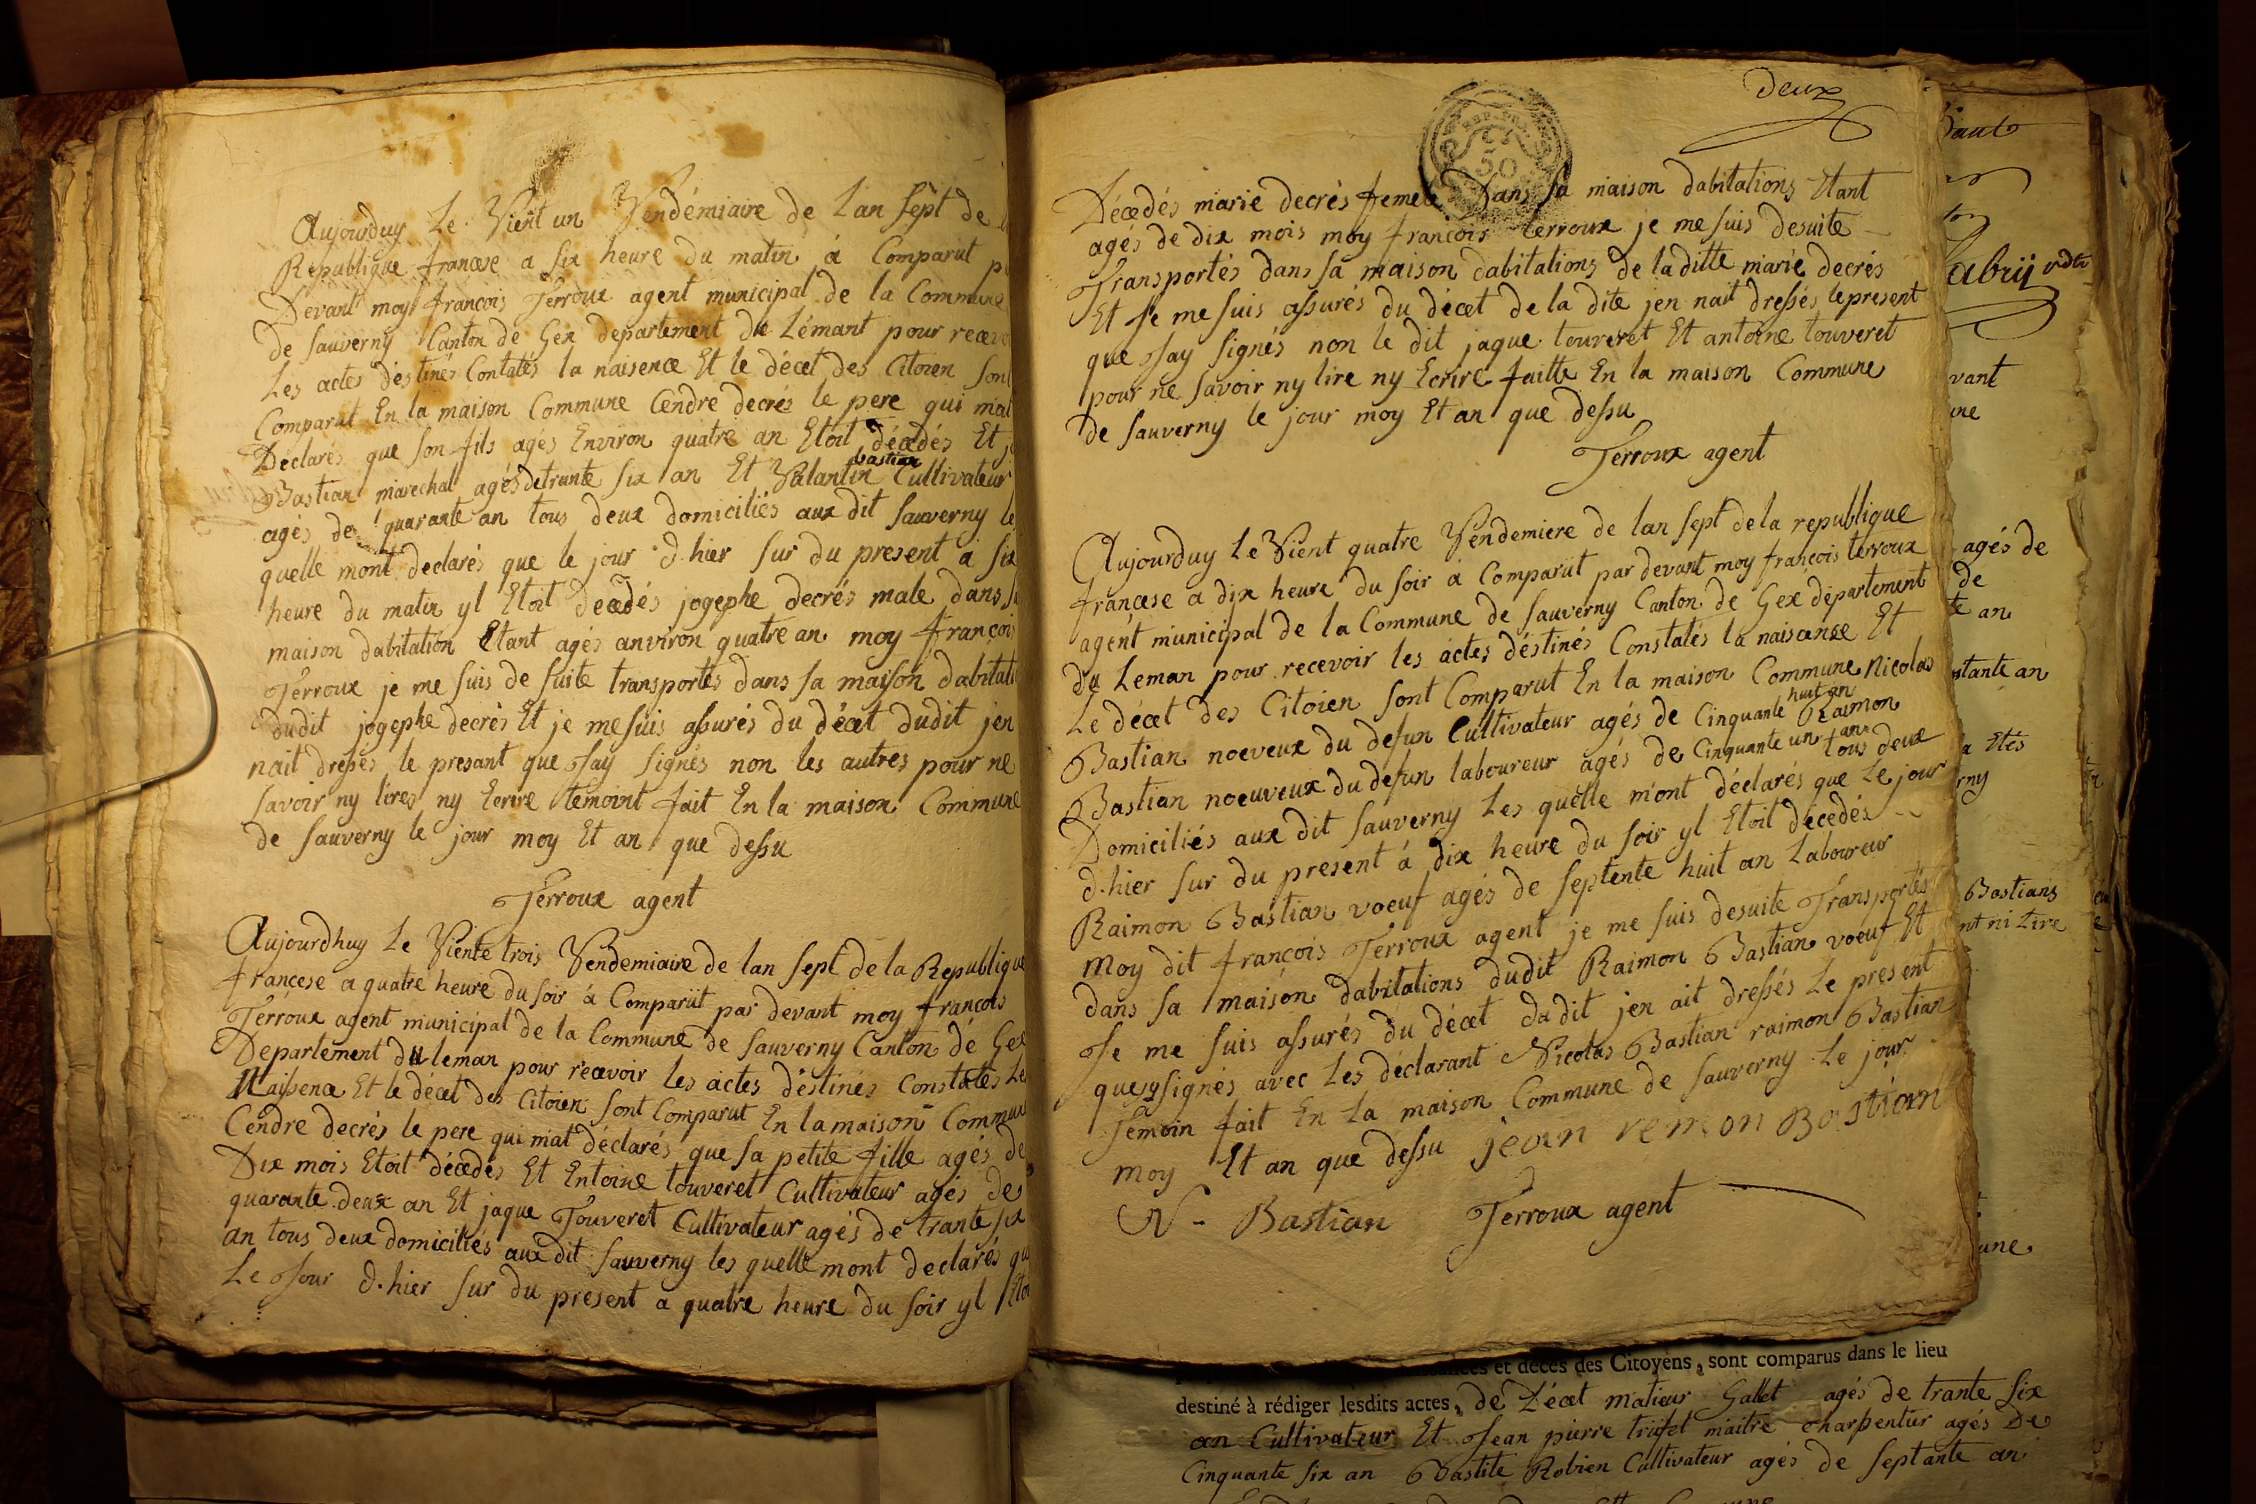 Aujourduy Le Vient un Vendémiaire de Lan sept de
Republique francese a six heure du matin á Comparut
Devant moy françois Terroux agent municipal de la Commune
de sauverny Canton de Gex departement du Lémant pour
Les actes déstinés Contatés la naisence Et le décet des Citoien
Comparut En la maison Commune Cendre decrés le pere qui
Declarés que son fils agés Environ quatre an Etoit décedés Et
bastian
Bastian marechal agés de trante six an Et Valantin Cultivateur
agés de quarante an tous deux domiciliés aux dit sauverny
quelle mont declarés que le jour d.hier sur du present a six
heure du matin yl Etoit decedés jogephe decrés male dans
maison dabitation Etant agés anviron quatre an moy françois
Terroux je me suis de suite transportés dans sa maison
dudit jogephe decrés Et je me suis assurés du décet dudit jen
nait dressés le presant que Jay signés non les autres pour ne
savoir ny lires ny Ecrire temoint fait En la maison Commune
de sauverny le jour moy Et an que dessu
Terroux agent
Aujourdhuy Le Viente trois Vendemiaire de lan sept de la Republique
francese a quatre heure du soir á Comparüt par devant moy francois
Terroux agent municipal de la Commune de sauverny Canton de Gex
Departement du leman pour recevoir les actes déstinés constatés
Naissence Et le décet des Citoien sont Comparut En la maison
Cendre decrés le pere qui mat déclarés que sa petite fille agés de
Dix mois Etoit décedés Et Entoine touveret Cultivateur agés de
quarante deux an Et jaque Touveret Cultivateur agés de trante six
an tous deux domiciliés aux dit sauverny les quelle mont declarés
Le Jour d.hier sur du present a quatre heure du soir yl
deux
50
Décedés marie decrés femele Dans sa maison dabitations Etant
agés de dix mois moy françois terroux je me suis desuite
Transportés dans sa maison dabitations de la ditte marie decrés
Et Je me suis assurés du décet de la dite jen nait dressés le present
que Jay signés non le dit jaque touveret Et antoine touveret
pour ne savoir ny lire ny Ecrire faitte En la maison Commune
de sauverny le jour moy Et an que dessu
Terroux agent
Aujourduy Le Vient quatre Vendemiere de lan sept de la republique
françese a dix heure du soir á Comparüt par devant moy françois terroux
agent municipal de la Commune de sauverny Canton de Gex département
du Leman pour recevoir les actes déstinés Constatés la naisanse Et
Le décet des Citoien sont Comparut En la maison Commune Nicolas
huit an
Bastian noeveux du defun Cultivateur agés de Cinquante Raimon
Bastian noeuveux du defun laboureur agés de Cinquante un an tous deux
Domiciliés aux dit sauverny Les quelle mont déclarés que Le jour
d.hier sur du present á dix heure du soir yl Etoit décedés
Raimon Bastian voeuf agés de septente huit an Laboureur
Moy dit françois Terroux agent je me suis desuite Transportés
dans sa maison dabitations dudit Raimon Bastian voeuf Et
Je me suis assurés du décet dudit jen ait dressés Le present
que signés avec Les déclarant Nicolas Bastian raimon Bastian
Temoin fait En La maison Commune de sauverny Le jour
moy Et an que dessu jean remon Bastian
N - Bastian Terroux agent
vant
agés de
de
an
Bastians
ni Lire
et décès des Citoyens, sont comparus dans le lieu
destiné à rédiger lesdits actes, de Décet matieur Gallet agés de trante six
an Cultivateur Et Jean pierre trufet maitre charpentier agés De
Cinquante six an Bastite Robien Cultivateur agés de septante an